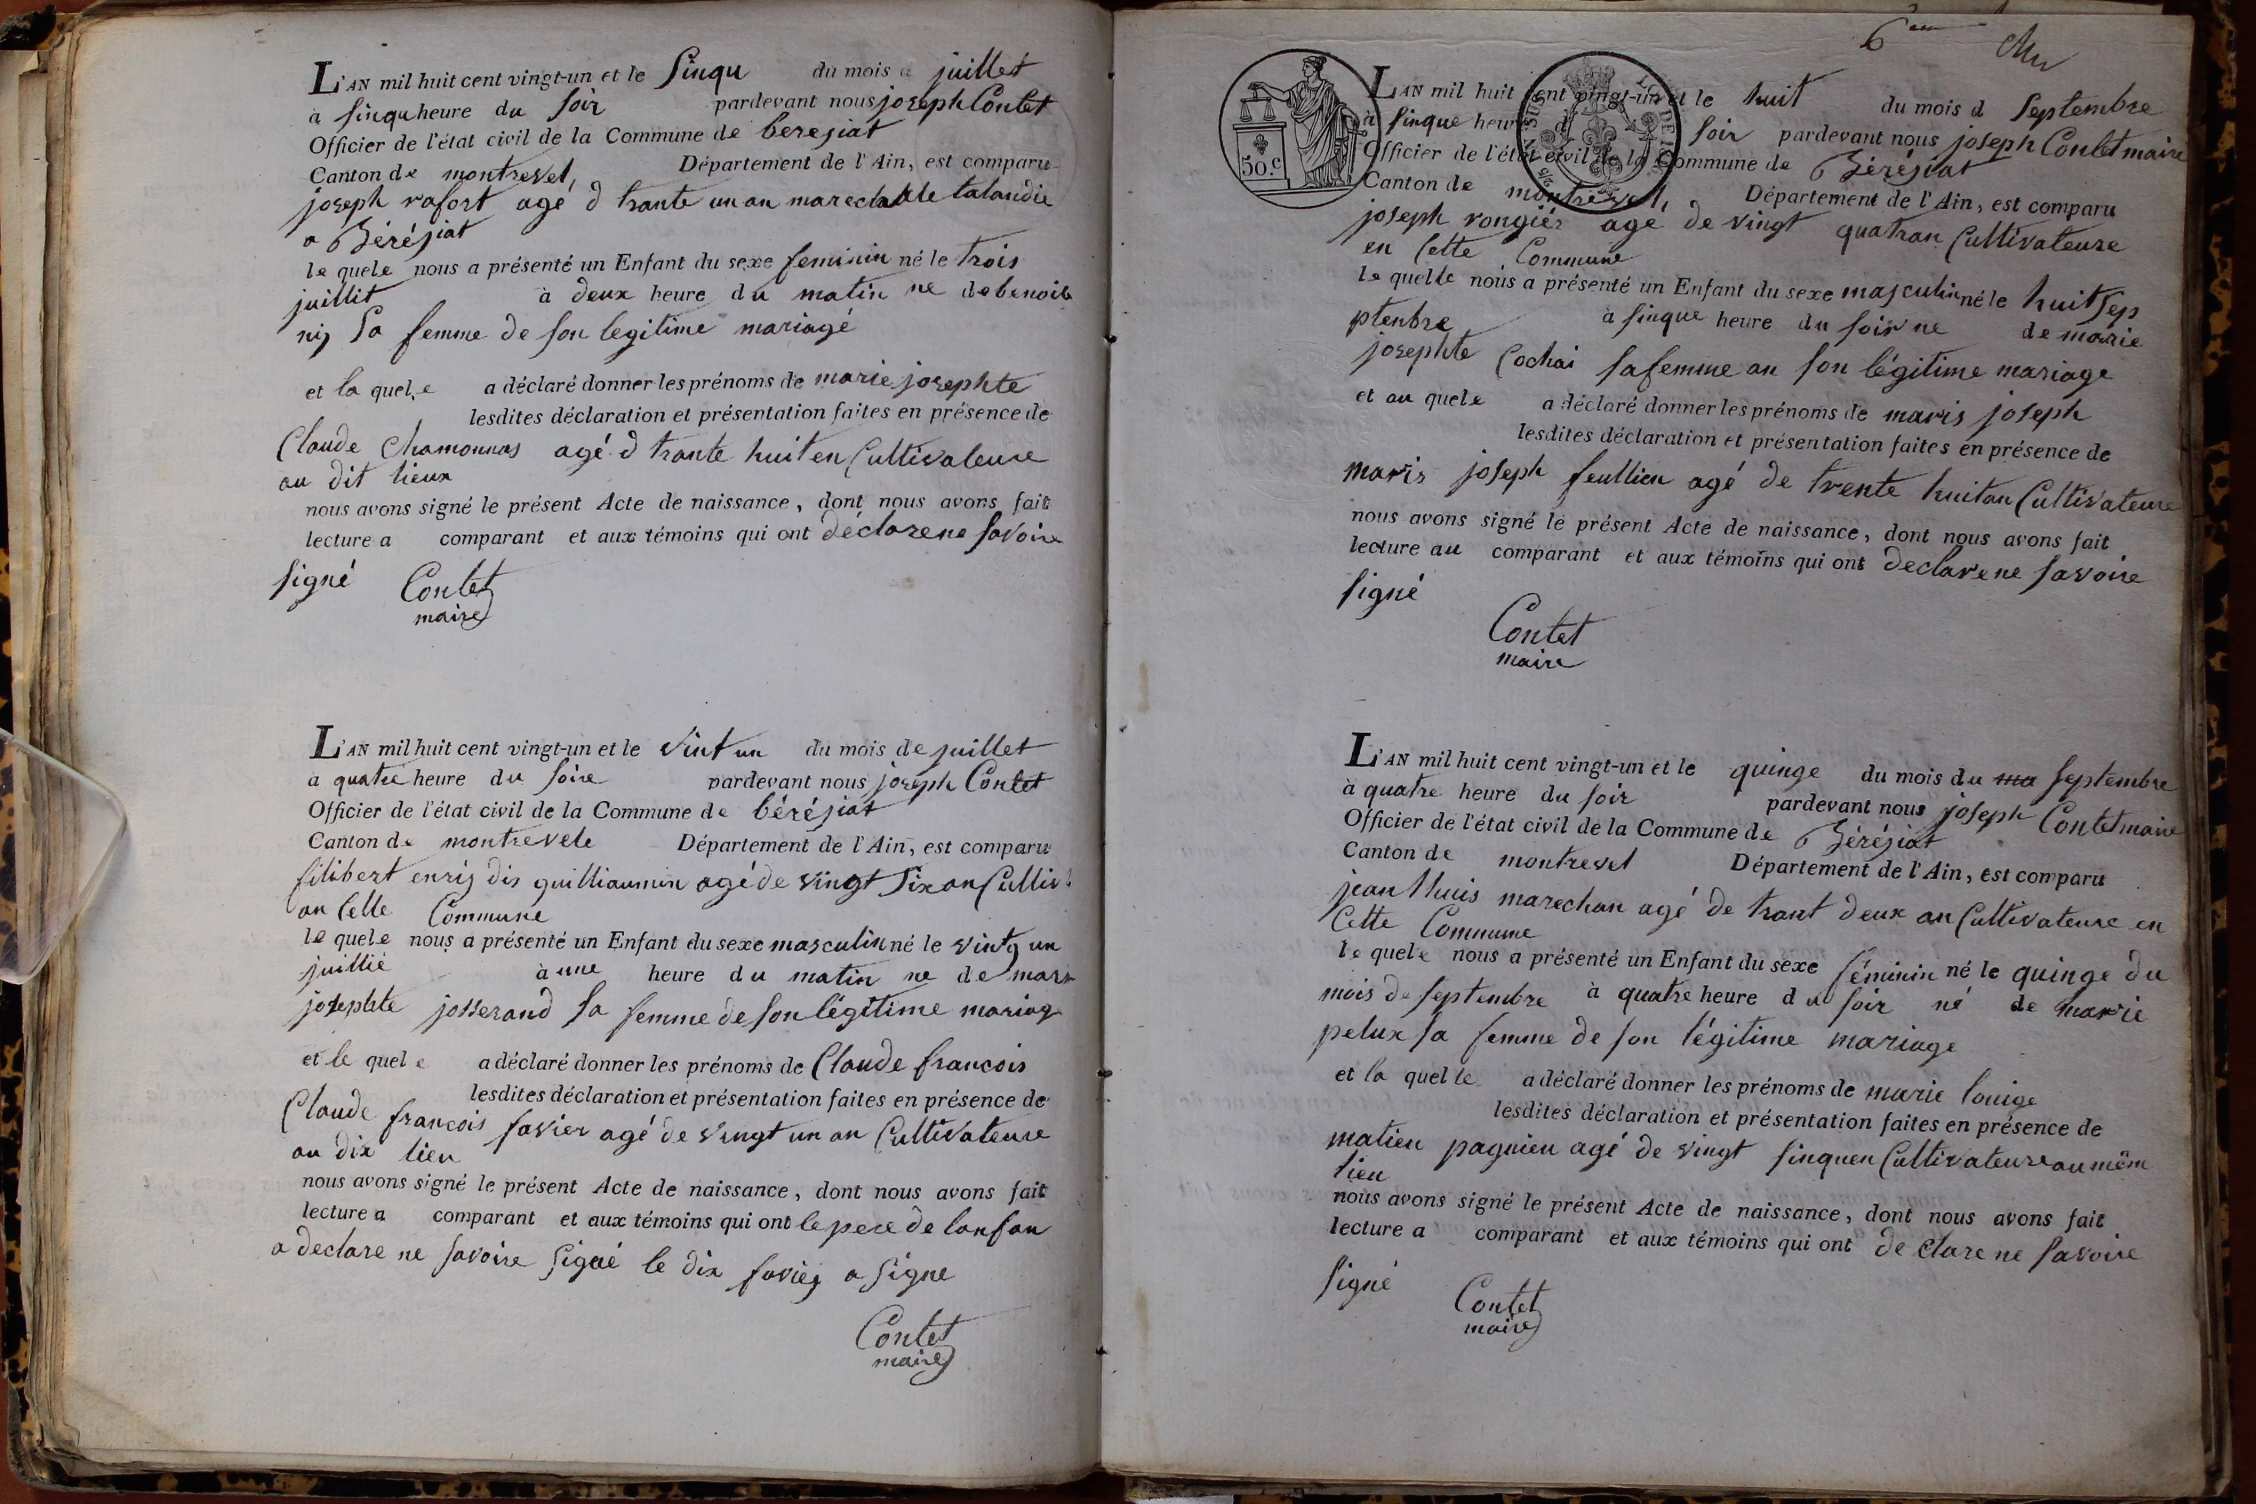 L'AN mil huit cent vingt-un et le sinqu du mois d juillet
à sinqu heure du soir pardevant nous joseph Contet
Officier de l'état civil de la Commune de beresiat
Canton de montrevel, Département de l'Ain, est comparu
joseph rafort agé d trante un an marechal
a Bérésiat
le quele nous a présenté un Enfant du sexe feminin né le trois
juillit à deux heure du matin ne de benoite
sa femme de son legitime mariagé
et la quele a déclaré donner les prénoms de marie josephte
lesdites déclaration et présentation faites en présence de
Claude Chamonnas agé d trante huit en Cultivateure
au dit lieux
nous avons signé le présent Acte de naissance, dont nous avons fait
lecture a comparant et aux témoins qui ont déclare ne savoire
signé Contet
maire
L'AN mil huit cent vingt-un et le vint un du mois de juillet
à quatre heure du soire pardevant nous joseph Contet
Officier de l'état civil de la Commune de bérésiat
Canton de montrevele Département de l'Ain, est comparu
filibert enrij dis guilliaumin agé de vingt six an Cultiv
an Cette Commune
le quele nous a présenté un Enfant du sexe masculin né le vintg un
juillié à une heure du matin ne de marie
josephte josserand sa femme de son légitime mariage
et le quel e a déclaré donner les prénoms de Claude francois
lesdites déclaration et présentation faites en présence de
Claude francois favier agé de vingt un an Cultivateure
au dix lieu
nous avons signé le présent Acte de naissance, dont nous avons fait
lecture a comparant et aux témoins qui ont le pere de lanfan
a declare ne savoire signé le dix favier a signe
Contet
maire
6eme
50.c
L'AN mil huit cent vingt-un et le huit du mois d septembre
à sinque heure d soir pardevant nous joseph Contet maire
Officier de l'état civil de la Commune de Bérésiat
Canton de montrevel, Département de l'Ain, est comparu
joseph rongier age de vingt quatran Cultivateure
en Cette Commune
le quelle nous a présenté un Enfant du sexe masculin né le huit sep
ptenbre à sinque heure du soir ne de marie
josephte Cochai sa femme an son légitime mariage
et au quele a déclaré donner les prénoms de maris joseph
lesdites déclaration et présentation faites en présence de
maris joseph feullien agé de trente huit an Cultivateure
nous avons signé le présent Acte de naissance, dont nous avons fait
lecture au comparant et aux témoins qui ont declare ne savoire
signé
Contet
maire
L'AN mil huit cent vingt-un et le quinge du mois du ma septembre
à quatre heure du soir pardevant nous joseph Contet maire
Officier de l'état civil de la Commune de Bérésiat
Canton de montrevel Département de l'Ain, est comparu
jean lhuis marechan agé de trant deux an Cultivateure en
Cette Commune
le quele nous a présenté un Enfant du sexe féminin né le quinge du
mois de septembre à quatre heure du soir né de marie
pelux sa femme de son légitime mariage
et la quelle a déclaré donner les prénoms de marie louige
lesdites déclaration et présentation faites en présence de
matieu pagnieu agé de vingt sinquen Cultivateure au mêm
lieu
nous avons signé le présent Acte de naissance, dont nous avons fait
lecture a comparant et aux témoins qui ont de clare ne savoire
signé
Contet
maire